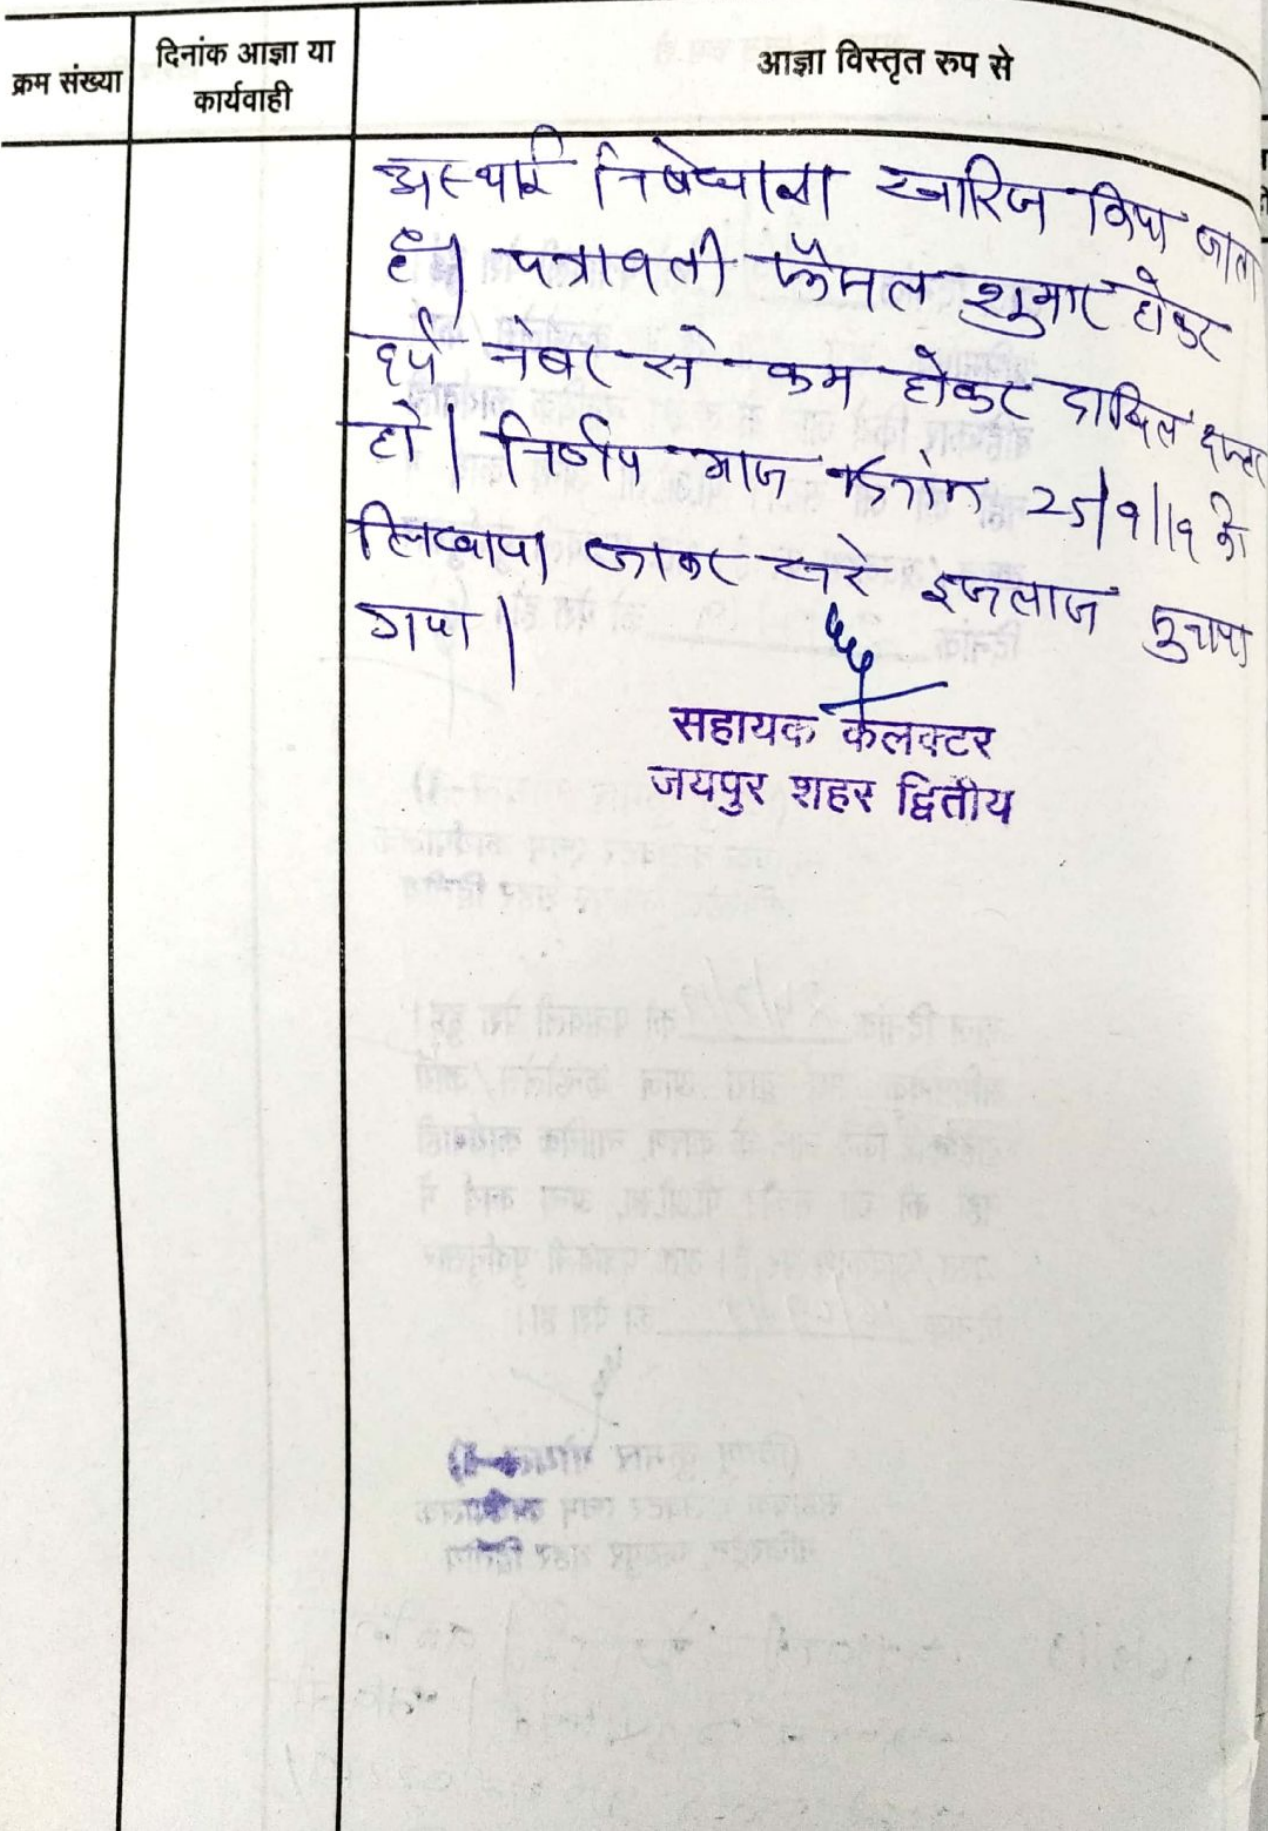 क्रम संख्या
दिनांक आज्ञा या
कार्यवाही
आज्ञा विस्तृत रुप से
अस्थाई निषेधाज्ञा खारिज किया जाता
है। पत्रावली फैसल शुमार होकर
नंबर से कम होकर दाखिल दफ्तर
हो। निर्णय आज दिनांक 25/9/19 को
लिखाया जाकर सरे इजलाज सुनाया
गया।
सहायक कलक्टर
जयपुर शहर द्वितीय